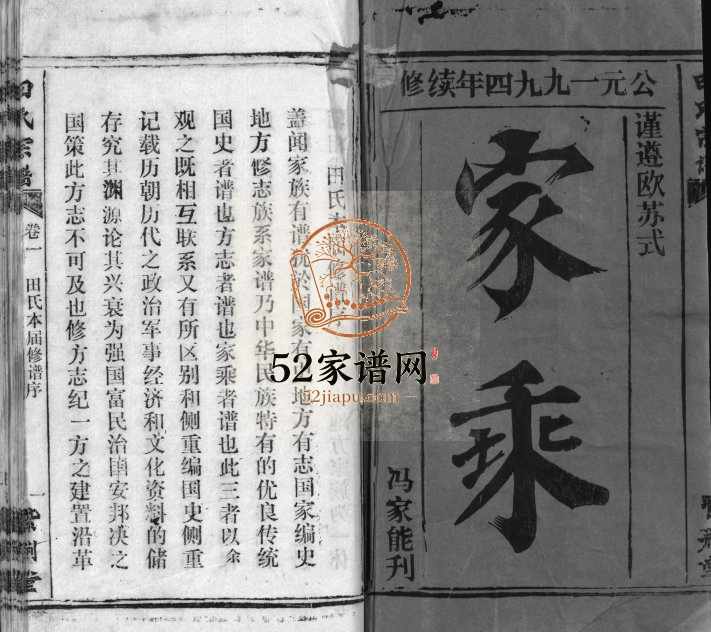 公元一九九四年续修
谨遵欧苏式
家乘
冯家能刊
田氏本届修谱序
盖闻家族有谱犹於国家有地方有志国家编史
地方修志族系家谱乃中华民族特有的优良传统
国史者谱也方志者谱也家乘者谱也此三者以余
观之既相互联系又有所区别和侧重编国史侧重
记载历朝历代之政治军事经济和文化资料的储
存究其渊源论其兴衰为强国富民治国安邦决之
国策此方志不可及也修方志纪一方之建置沿革
田氏宗谱
卷一
田氏本届修谱序
一
紫荆堂
52家谱网
52jiapu.com